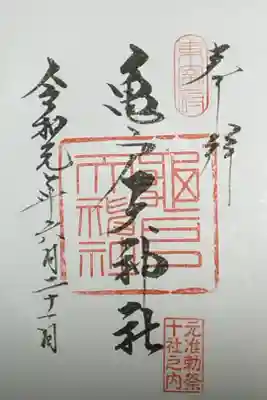 東宰府
奉拝
亀戸天神社
龜戸
天神社
元准勅祭
十社之内
令和元年六月二十一日